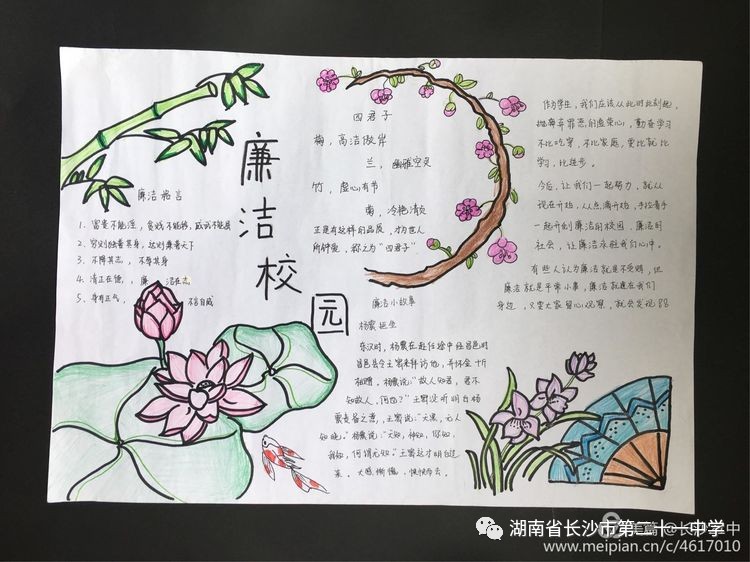 廉洁校园
廉洁格言
1、富贵不能淫，贫贱不能移，威武不能屈
2、穷则独善其身，达则兼善天下
3、不降其志，不辱其身
4、清正在德，廉洁在志
5、身有正气，不言自威
四君子
梅，高洁傲岸
兰，幽雅空灵
竹，虚心有节
菊，冷艳清贞
正是有这样的品质，才为世人
所钟爱，称之为“四君子”
廉洁小故事
杨震拒金
东汉时，杨震在赴任途中经昌邑时
昌邑县令王密来拜访他，并怀金十斤
相赠，杨震说：“故人知君，君不
知故人，何也？”王密没听明白杨
震责备之意，王密说：“天黑，无人
知晓。”杨震说：“天知，神知，你知，
我知，何谓无知。”王密这才明白过
来，大感惭愧，怏怏而去。
作为学生，我们应该从此时此刻起，
抛弃弃罪恶的虚荣心，勤奋学习
不比吃穿，不比家庭，要比就比
学习，比进步。
今后，让我们一起努力，就从
现在开始，从点滴开始，手拉着手
一起开创廉洁的校园，廉洁的
社会，让廉洁永驻我们心中。
有些人认为廉洁就是不受贿，但
廉洁就是平常小事，廉洁就是在我们
身边，只要大家留心观察，就会发现
湖南省长沙市第二十一中学
www.meipian.cn/c/4617010